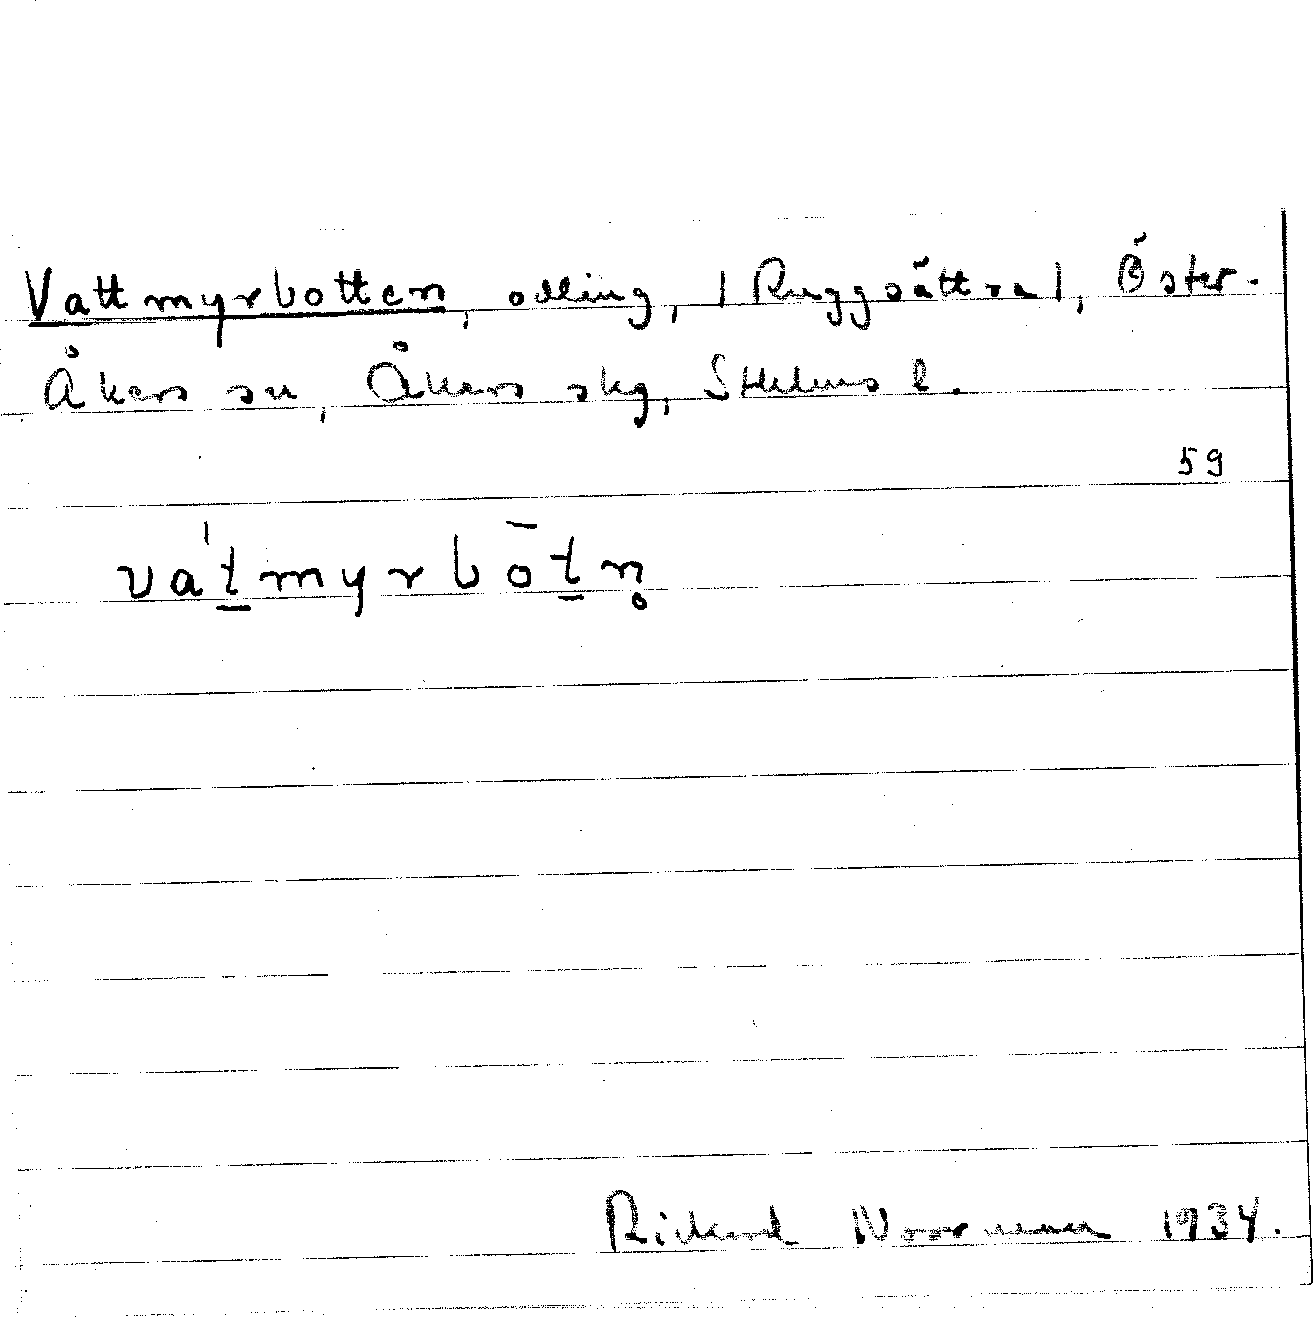 Vattmyrbotten, odling, | Ruggsättra |, Öster-
Åkers sn, Åkers skg, Sthlms l.
59
va̍t̲myrbōt̲n̥
Rickard Norrman 1934.